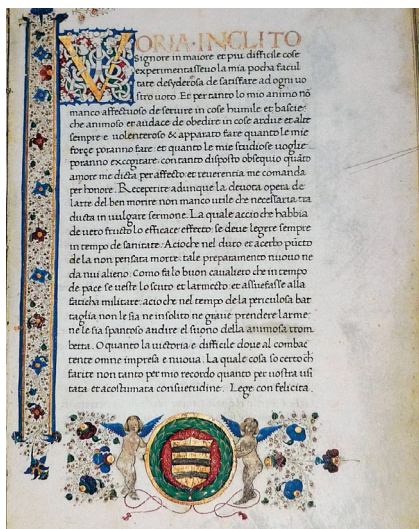 VORIA·INCLITO
Signore in maiore et piu difficile cose
experimentasseuo la mia pocha facul
tate desyderosa de satisfare ad ogni uo
stro uoto. Et per tanto lo mio animo nō
manco affectuoso de seruire in cose humile et basse:
che animoso et audace de obedire in cose ardue et alte
sempre e uolenteroso & apparato fare quanto le mie
forçe poranno fare: et quanto le mie studiose uoglie
poranno excogitare. con tanto disposto obsequio quāto
amore me dicta per affecto: et reuerentia me comanda
per honore. Receperite adunque la deuota opera de
larte del ben morire non manco utile che necessaria tra
ducta in uulgare sermone. La quale accio che habbia
de uero fructo lo efficace effecto: se deue legere sempre
in tempo de sanitate. Acioche nel duro et acerbo pūcto
de la non pensata morte: tale preparamento nuouo ne
da nui alieno. Como fa lo buon caualiero che in tempo
de pace se ueste lo scuto et larmecto: et assuefasse alla
faticha militare: acio che nel tempo de la periculosa bat
taglia non le sia ne insolito ne graue prendere larme:
ne le sia spantoso audire el suono della animosa trom
betta. O quanto la uictoria e difficile doue al combac
tente omne impresa e nuoua. La quale cosa so certo ch
farite non tanto per mio recordo quanto per uostra usi
tata et acostumata consuetudine. Lege con felicita.